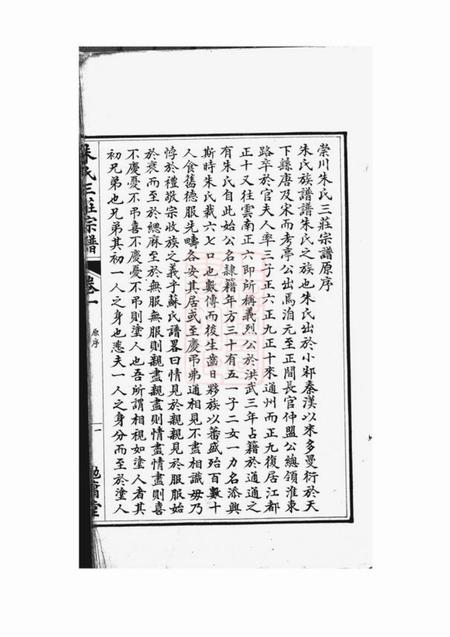 崇川朱氏三莊宗譜原序
朱氏族譜譜朱氏之族也朱氏出於小邾秦漢以來多曼衍於天
下繇唐及宋而考亭公出焉洎元至正間長官仲盟公總領淮東
路卒於官夫人率三子正六正九正十來通州而正九復居江都
正十又往雲南正六即所稱義烈公於洪武三年占籍於通通之
有朱氏自此始公名隸籍年方三十有五一子二女一力名添興
斯時朱氏載六七口也數傳而後生齒日夥族以蕃盛殆百數十
人食舊德服先疇各安其居或至慶弔弗通相見不盡相識毋乃
悖於禮敬宗收族之義乎蘇氏譜畧曰情見於親親見於服服始
於衰而至於緦麻至於無服無服則親盡親盡則情盡情盡則喜
不慶憂不弔喜不慶憂不弔則塗人也吾所謂相視如塗人者其
初兄弟也兄弟其初一人之身也悲夫一人之身分而至於塗人
朱氏三莊宗譜
卷一
原序
一